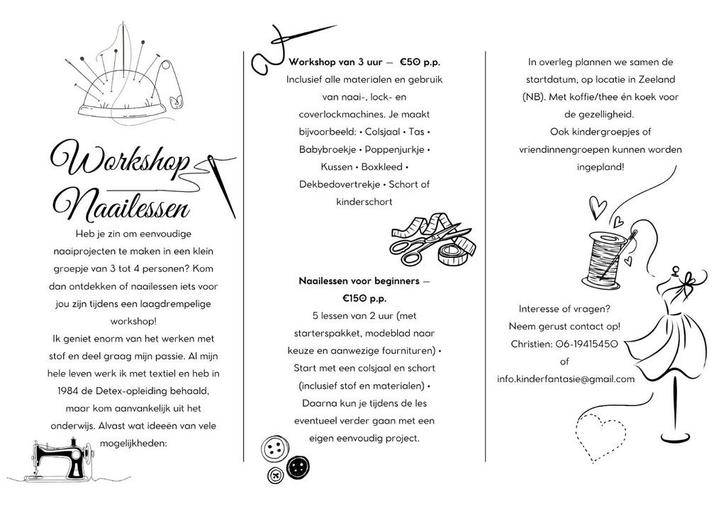 Workshop
Naailessen
Heb je zin om eenvoudige
naaiprojecten te maken in een klein
groepje van 3 tot 4 personen? Kom
dan ontdekken of naailessen iets voor
jou zijn tijdens een laagdrempelige
workshop!
Ik geniet enorm van het werken met
stof en deel graag mijn passie. Al mijn
hele leven werk ik met textiel en heb in
1984 de Detex-opleiding behaald,
maar kom aanvankelijk uit het
onderwijs. Alvast wat ideeën van vele
mogelijkheden:
Workshop van 3 uur – €50 p.p.
Inclusief alle materialen en gebruik
van naai-, lock- en
coverlockmachines. Je maakt
bijvoorbeeld: • Colsjaal • Tas •
Babybroekje • Poppenjurkje •
Kussen • Boxkleed •
Dekbedovertrekje • Schort of
kinderschort
Naailessen voor beginners –
€150 p.p.
5 lessen van 2 uur (met
starterspakket, modeblad naar
keuze en aanwezige fournituren) •
Start met een colsjaal en schort
(inclusief stof en materialen) •
Daarna kun je tijdens de les
eventueel verder gaan met een
eigen eenvoudig project.
In overleg plannen we samen de
startdatum, op locatie in Zeeland
(NB). Met koffie/thee én koek voor
de gezelligheid.
Ook kindergroepjes of
vriendinnengroepen kunnen worden
ingepland!
Interesse of vragen?
Neem gerust contact op!
Christien: 06-19415450
of
info.kinderfantasie@gmail.com